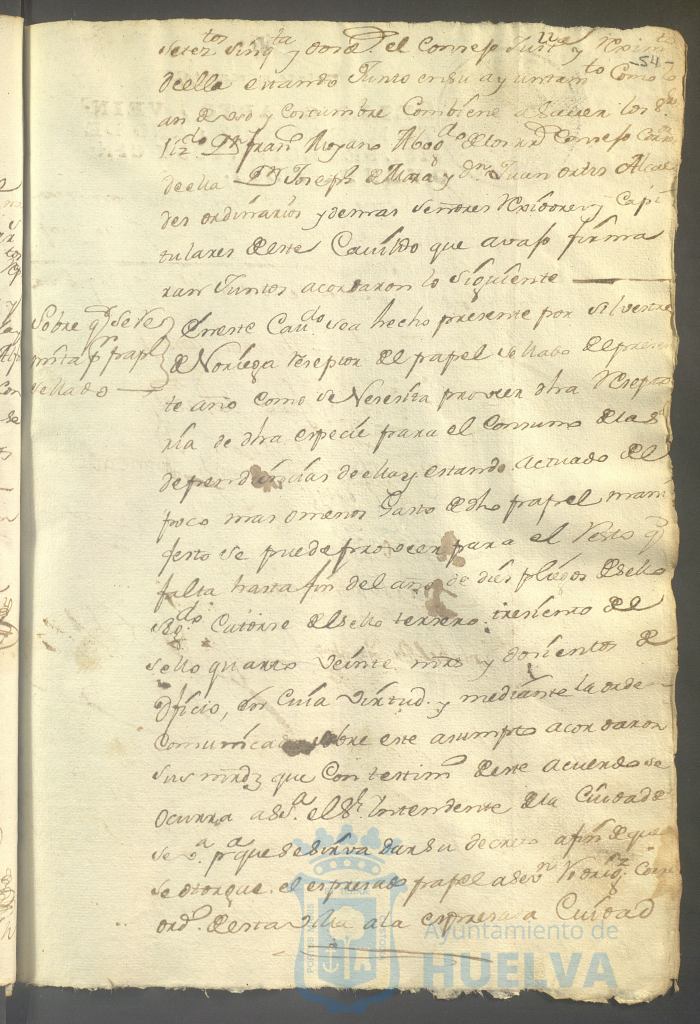 setez.tos sinq.ta y dos a.s el Conzejo Just.a y Reximto
-54-
de ella estando Junto en su ayuntam.to Como lo
an de uso y Costumbre Combiene a saver los S.res
liz.do Dn fran.co Moyano Abog.do de los R.s Consejos Corr.or
de ella Dn Joseph de Mora y Dn Juan ortis Alcal
des ordinarios y demas Señores Rexidores y Capi
tulares de este Cavildo que avajo firma
ran Juntos acordaron lo siguiente
Sobre q.e se Re
mita p.r papl
sellado
En este Cau.do sea hecho presente por silvestre
de Noriega Rezeptor del papel sellado del presen
te año Como se Nesesita proveer dha Rezepto
ria de dha espezie para el Consumo de las
dependiencias de ella y estando actuado del
poco mas o menos Gasto de dho papel mani
festo se puede proveer para el Resto q.e
falta hasta fin del año de dies pliegos de sello
seg.do Catorse del sello terzero tresientos del
sello quarto veinte mrs y dosientos de
Oficio, En Cuia Virtud y mediante la orden
Comunicada sobre este asumpto acordaron
sus mrdz que Con testim.o de este acuerdo se
ocurra a S.Sa. el S.r Intendente de la Ciudad de
Sev.a p.a que se sirva dar su decreto a fin de que
se otorgue el espresado papel a
ord.o de esta Villa a la espresada Ciudad
Ayuntamiento de
HUELVA